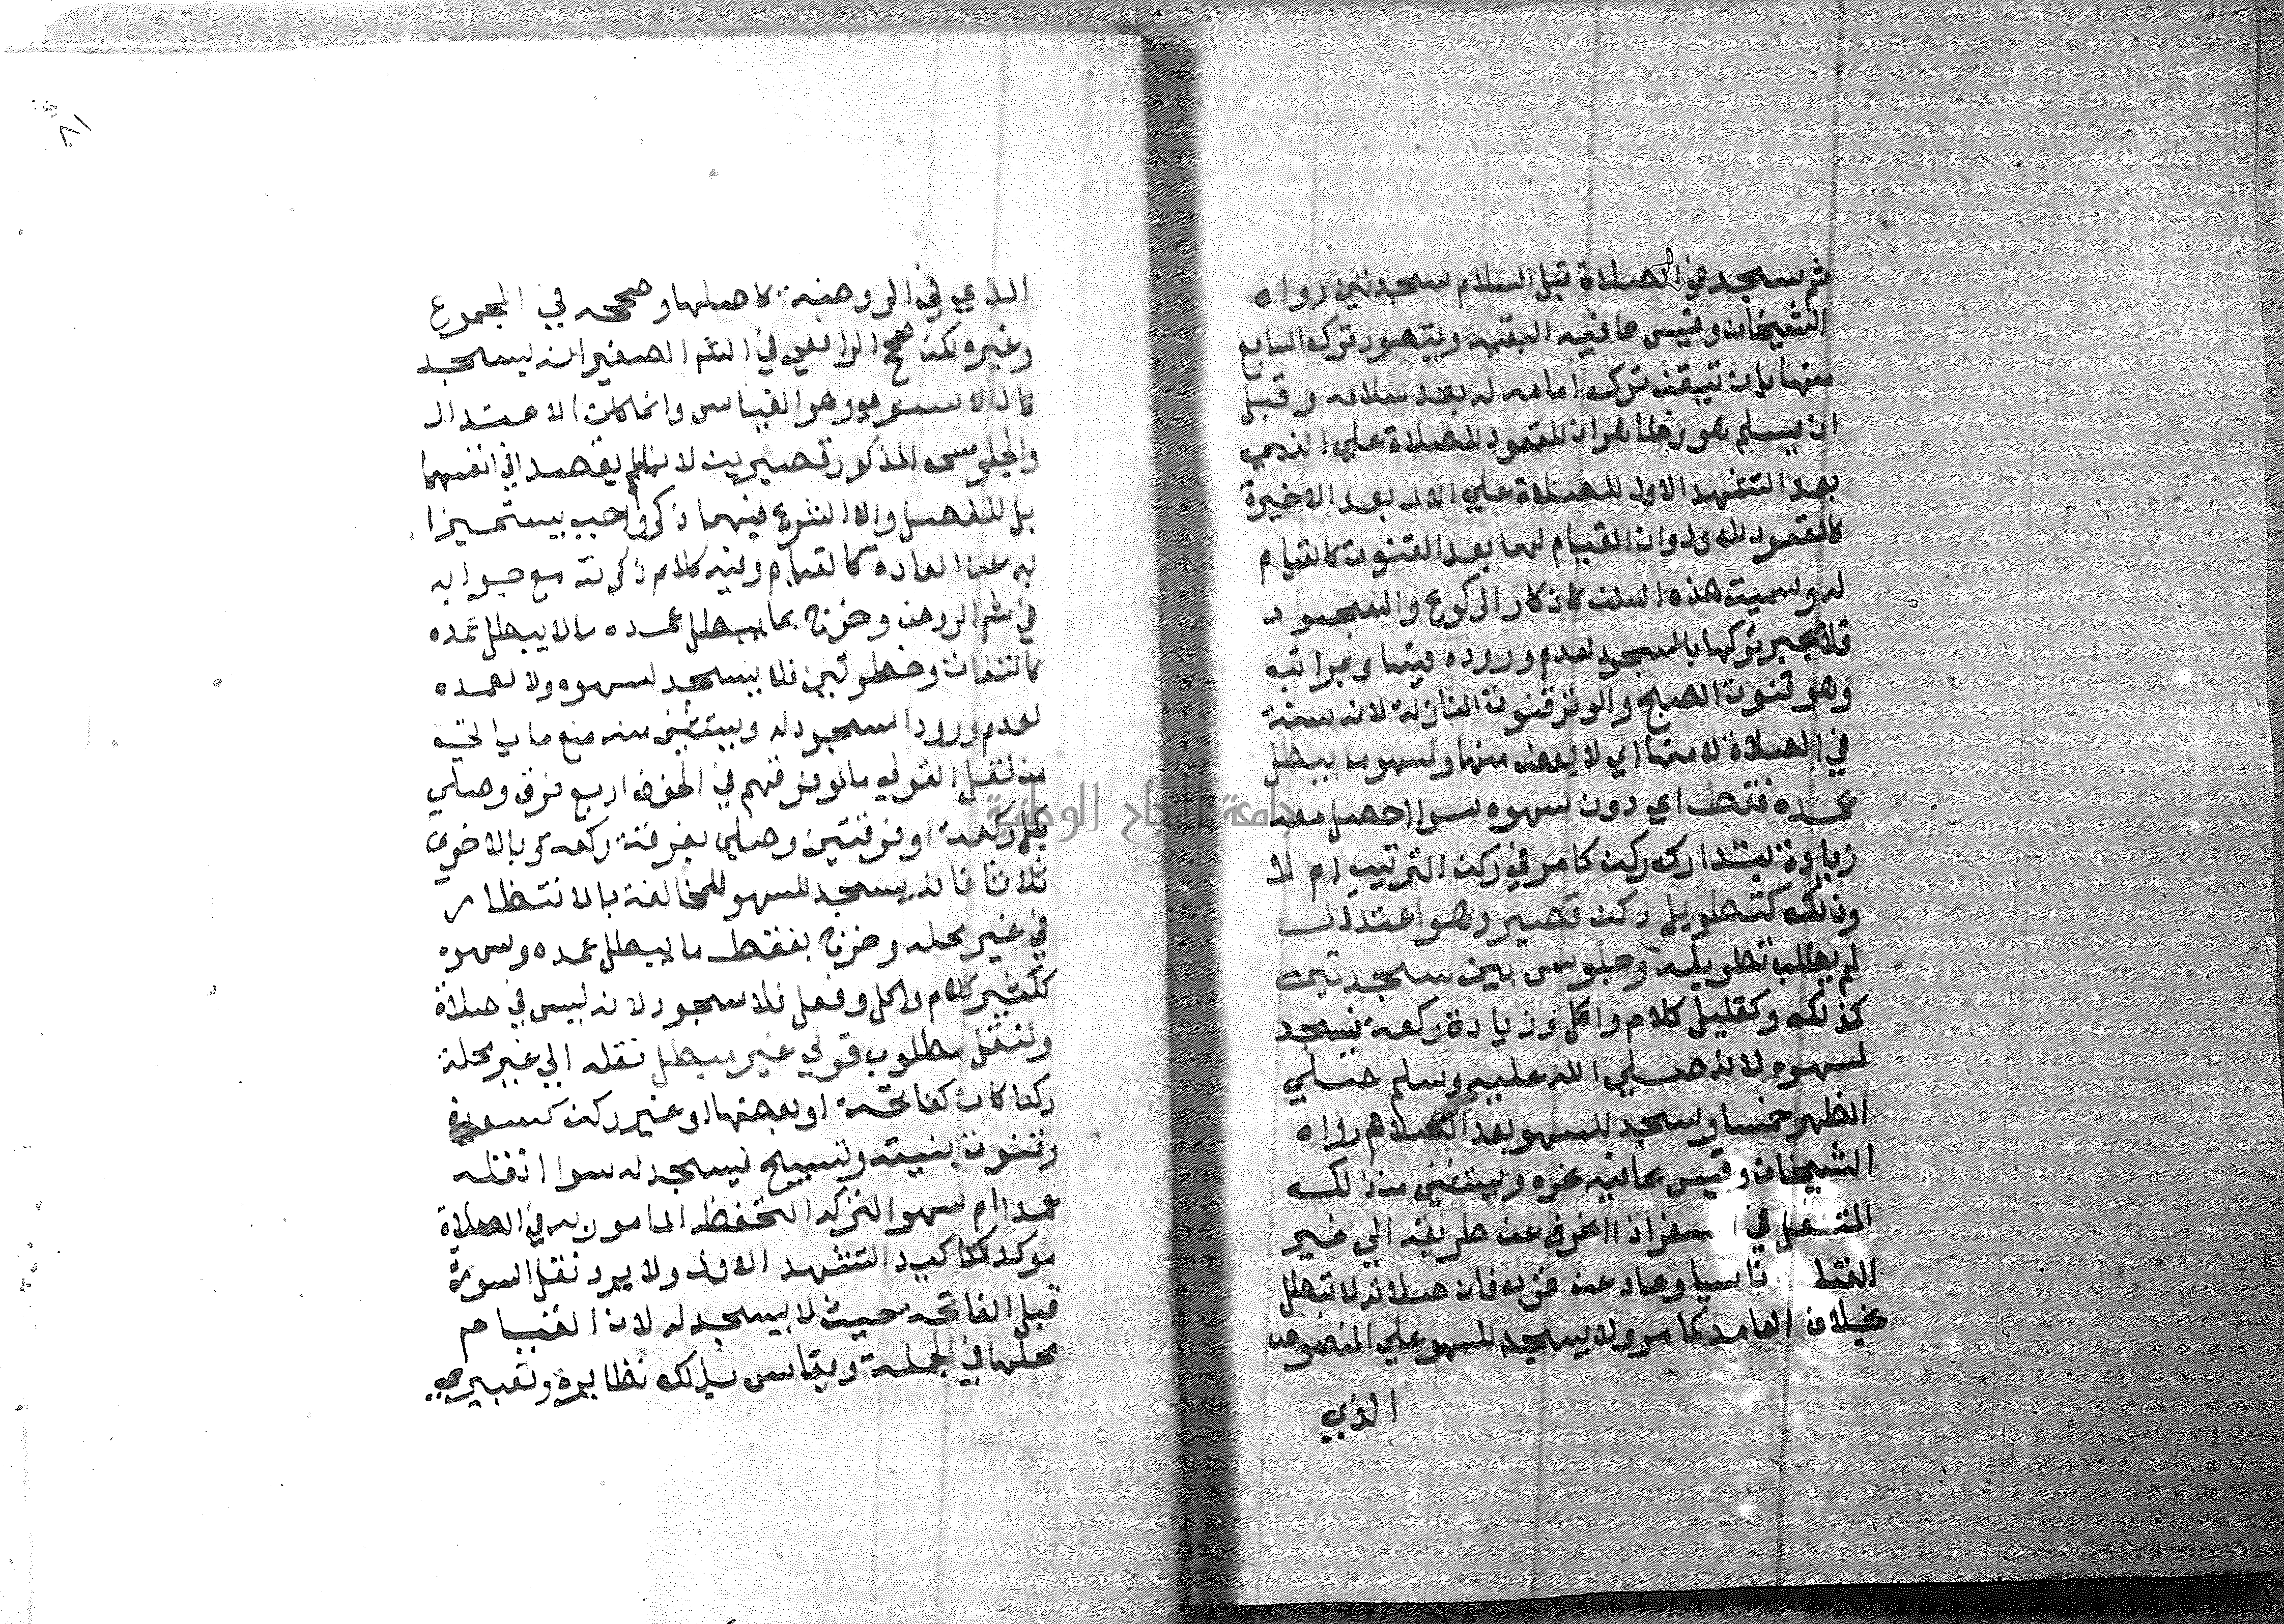 ثم سجد في اخر الصلاة قبل السلام سجدتين رواه
الشيخان وقيس بما فيه البقية ويتصور ترك السابع
منها بان تيقن ترك امامه له بعد سلامه وقبل
ان يسلم هو وظاهر ان القعود للصلاة علي النبي
بعد التشهد الاول للصلاة علي الال بعد الاخيرة
كالقعود للاول وان القيام لهما بعد القنوت كالقيام
له وسميت هذه السنن كاذكار الركوع والسجود
فلا تجبر تركها بالسجود لعدم وروده فيها
وهو قنوت الصبح والوتر قنوت النازلة لانه سنة
في الصلاة لا منها اي لا بعض منها ولسهو ما يبطل
عمده فقط اي دون سهوه سوا احصل معه
زيادة بتدارك ركن كما مر في ركن الترتيب ام لا
وذلك كتطويل ركن قصير وهو اعتدال
لم يطلب تطويله وجلوس بين سجدتين
كذلك وكقليل كلام واكل وزيادة ركعة فيسجد
لسهوه لانه صلي الله عليه وسلم صلي
الظهر خمسا وسجد للسهو بعد السلام رواه
الشيخان وقيس بما فيه غيره ويستثني من ذلك
المتنفل في السفر اذا انحرف عن طريقه الي غير
القبلة ناسيا وعاد عن قرب فان صلاته لا تبطل
بخلاف العامد كما مر ولا يسجد للسهو علي المنصوص
الذي
الذي في الروضة كاصلها وصححه في المجموع
وغيره لكن صحح الرافعي في الشرح الصغير انه يسجد
قال الاسنوي وهو القياس وانما كان الاعتدال
والجلوس المذكور قصيرين لانهما لم يقصدا في انفسهما
بل للفصل والا لشرع فيهما ذكر واجب ليتميزا
به عن العادة كالقيام وفيه كلام ذكرته مع جوابه
في شرح الروض وخرج بما يبطل عمده ما لا يبطل عمده
كالتفات وخطوتين فلا يسجد لسهوه ولا لعمده
لعدم ورود السجود له ويستثني منه مع ما ياتي
من نقل القولي ما لو فرقهم في الخوف اربع فرق وصلي
بكل ركعة او فرقتين وصلي بفرقة ركعة وبالاخري
ثلاثا فانه يسجد للسهو للمخالفة بالانتظار
في غير محله وخرج بفقط ما يبطل عمده وسهوه
ككثير كلام واكل وفعل فلا سجود لانه ليس في صلاة
ولنقل مطلوب قولي غير مبطل نقله الي غير محله
ركنا كان كفاتحة او بعضها او غير ركن كسورة
وقنوت بنيته وتسبيح فيسجد له سوا انقله
عمدا ام سهوا لتركه التحفظ المامور به في الصلاة
موكدا كتاكيد التشهد الاول ولا يرد نقل السورة
قبل الفاتحة حيث لا يسجد له لان القيام
محلها في الجملة ويقاس بذلك نظايره وتعبيري
جامعة النجاح الوطنية